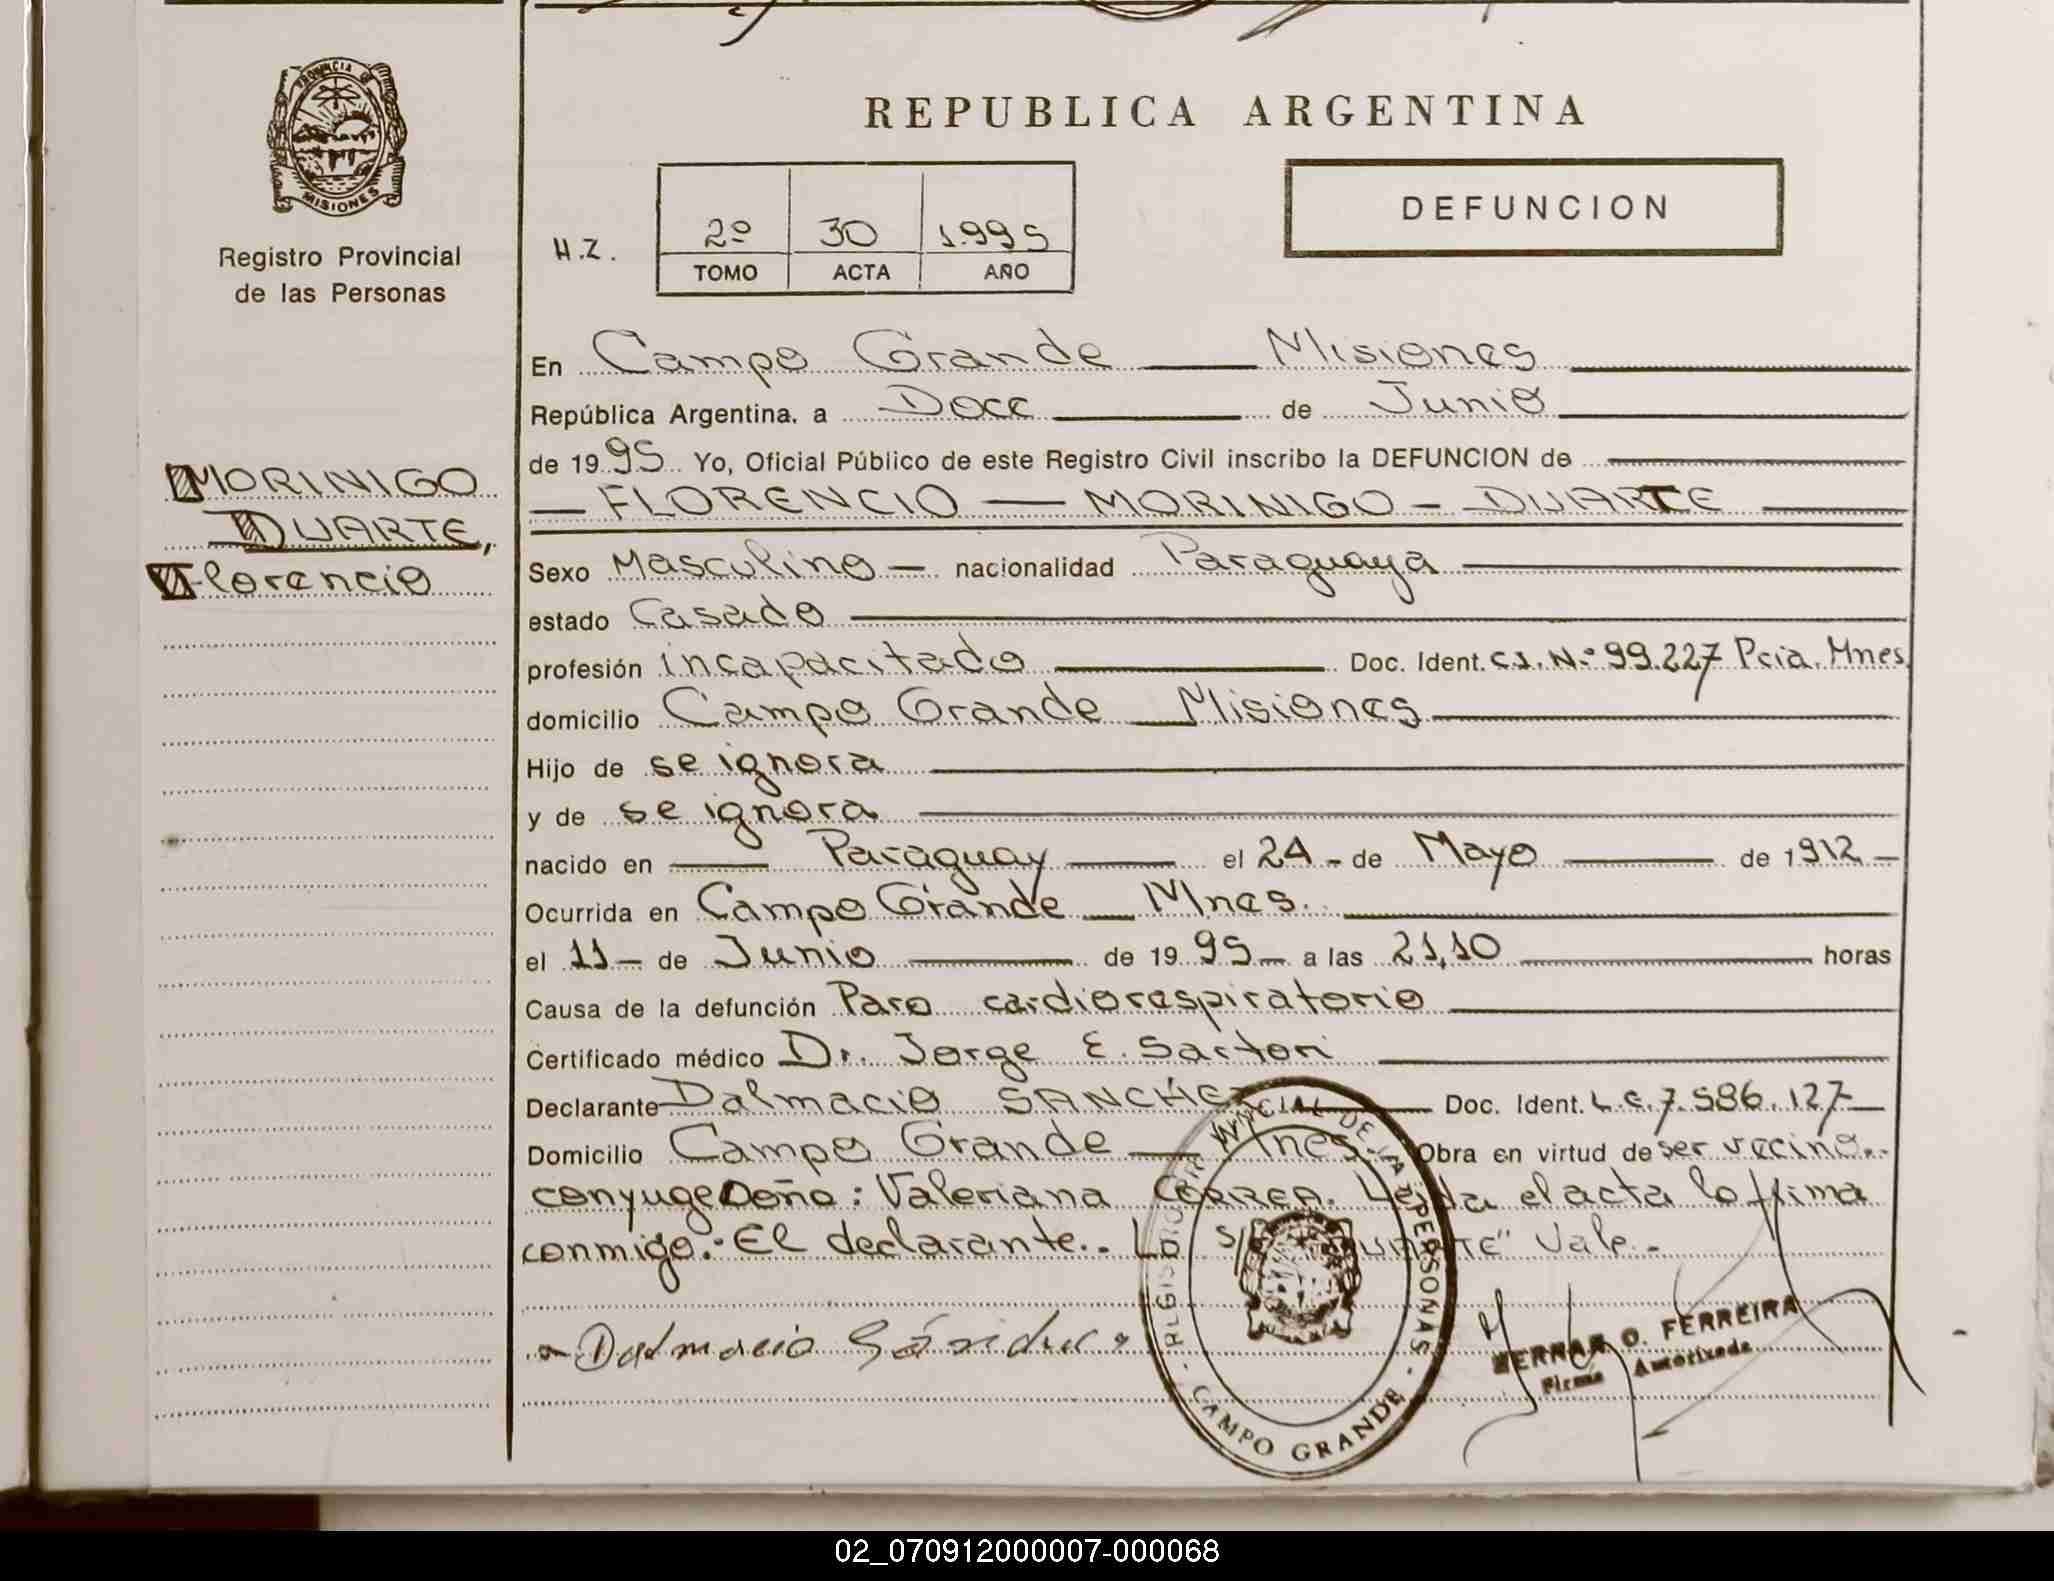 PROVINCIA DE
MISIONES
Registro Provincial
de las Personas
MORINIGO
DUARTE,
Florencio
REPUBLICA ARGENTINA
DEFUNCION
H.Z.
2º 30 1.995
TOMO ACTA AÑO
En Campo Grande Misiones
República Argentina, a Doce de Junio
de 1995 Yo, Oficial Público de este Registro Civil inscribo la DEFUNCION de
FLORENCIO MORINIGO - DUARTE
Sexo Masculino nacionalidad Paraguaya
estado Casado
profesión incapacitado Doc. Ident. C.I. N.º 99.227 Pcia. Mnes
domicilio Campo Grande Misiones
Hijo de se ignora
y de se ignora
nacido en Paraguay el 24 - de Mayo de 1912
Ocurrida en Campo Grande Mnes.
el 11 - de Junio de 1995 a las 21,10 horas
Causa de la defunción Paro cardiorespiratorio
Certificado médico Dr. Jorge E. Sartori
Declarante Dalmacio SANCHEZ Doc. Ident. L.E. 7.586.127
Domicilio Campo Grande Mnes. Obra en virtud de ser vecino.-
conyuge Doña: Valeriana CORREA. Leida el acta lo firma
conmigo.- El declarante.- Lo S/ "DUARTE" Vale.-
Dalmacio Sánchez
REGISTRO PROVINCIAL DE LAS PERSONAS
CAMPO GRANDE
O. FERREIRA
Firma Autorizada
02_070912000007-000068